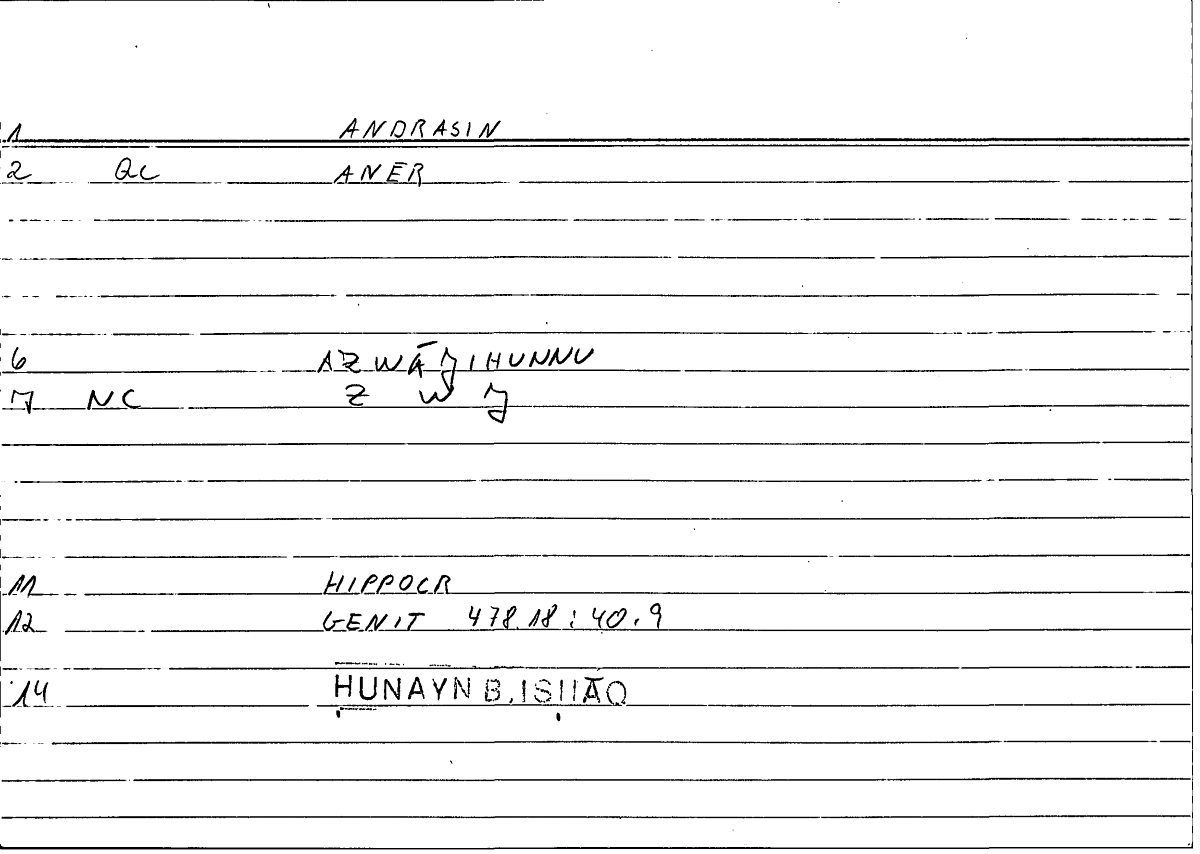 1 ANDRASIN
2 QC ANĒR
6 AZWĀǦIHUNNU
7 NC Z W Ǧ
11 HIPPOCR
12 GENIT 478.18:40.9
14 ḤUNAYN B.ISḤĀQ